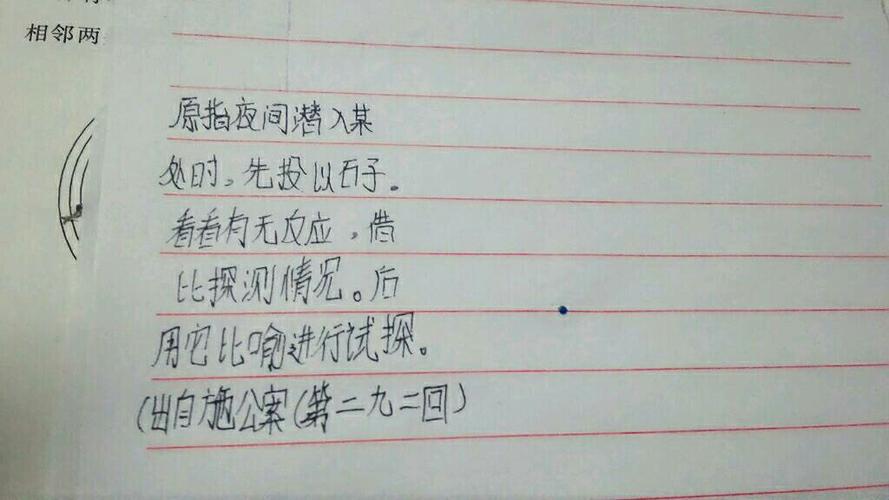 相邻两
原指夜间潜入某
处时，先投以石子。
看看有无反应，借
比探测情况。后
用它比喻进行试探。
(出自施公案(第二九二回)